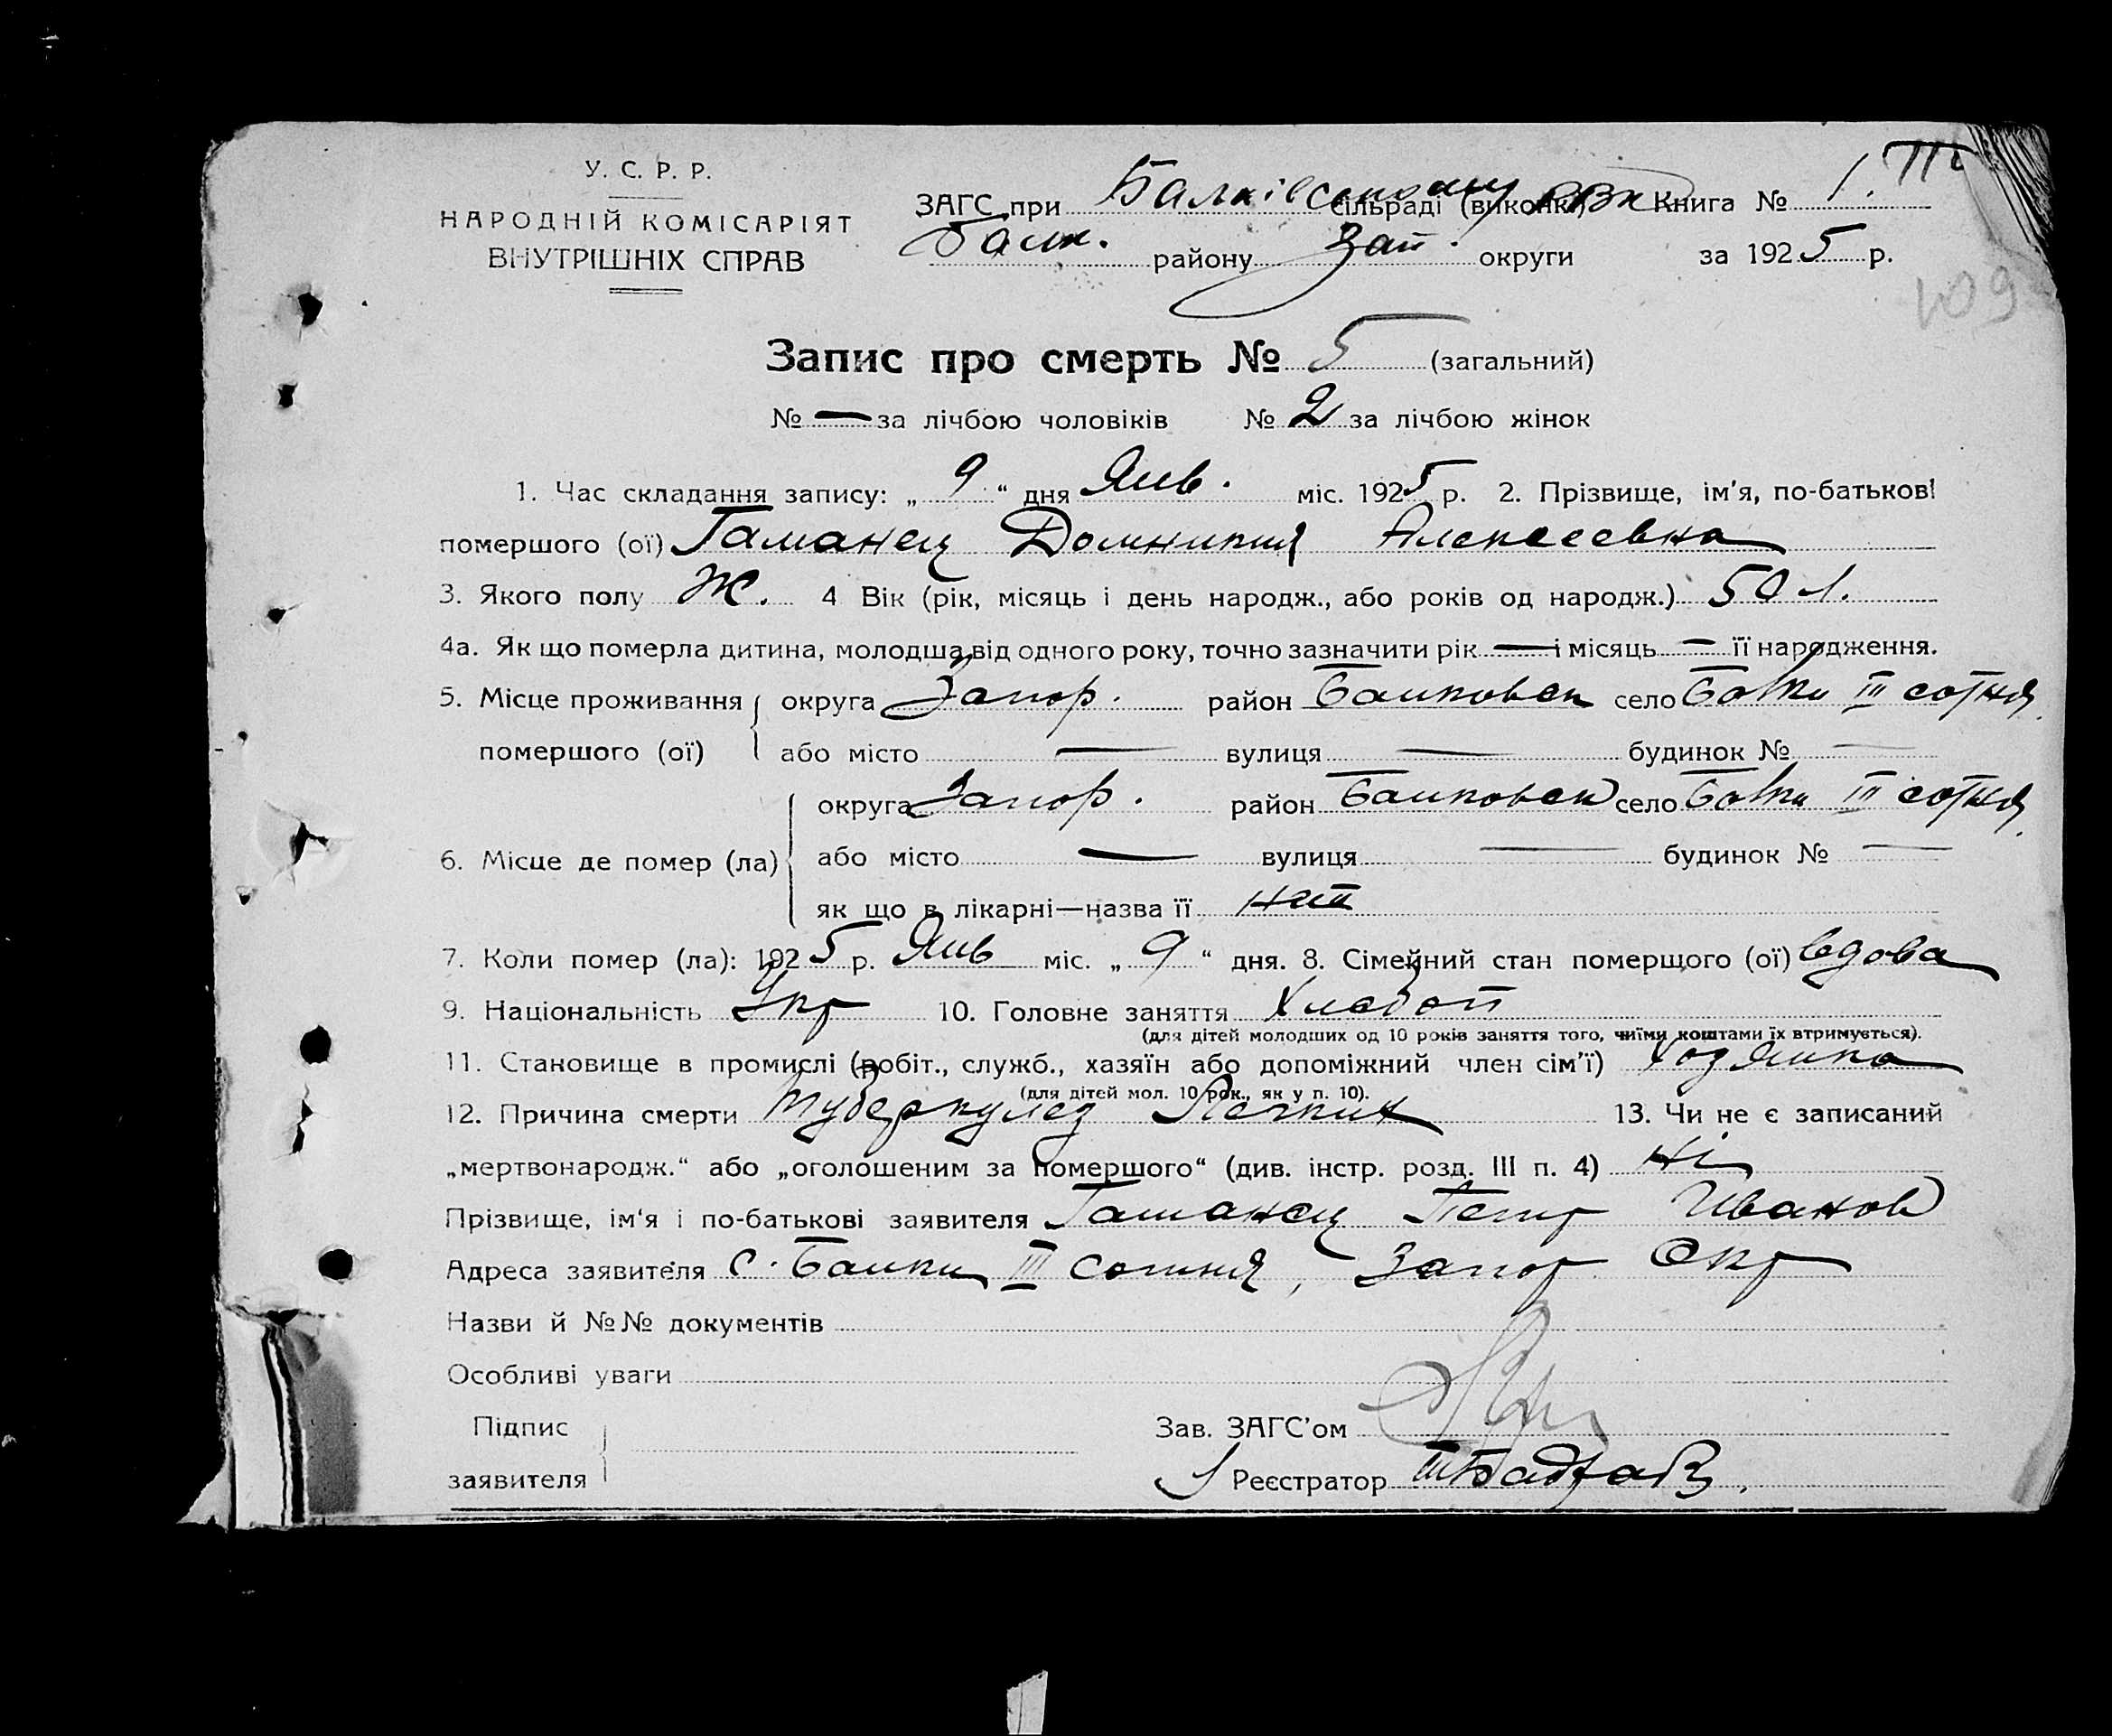 У. С. Р. Р.
НАРОДНІЙ КОМІСАРІЯТ
ВНУТРІШНІХ СПРАВ
ЗАГС при Балківському сільраді (виконк.) РВК Книга № 1. III
Балк. району Зап. округи за 1925 р.
109
Запис про смерть № 5 (загальний)
№ — за лічбою чоловіків № 2 за лічбою жінок
1. Час складання запису: „9“ дня Янв. міс. 1925 р. 2. Прізвище, ім'я, по-батькові
помершого (ої) Гаманец Домникия Алексеевна
3. Якого полу Ж. 4 Вік (рік, місяць і день народж., або років од народж.) 50 л.
4а. Як що померла дитина, молодша від одного року, точно зазначити рік — і місяць — її народження.
5. Місце проживання округа Запор. район Балковск село Балки III сотня
помершого (ої) або місто — вулиця — будинок № —
округа Запор. район Балковск село Балки III сотня
6. Місце де помер (ла) або місто — вулиця — будинок № —
як що в лікарні—назва її нет
7. Коли помер (ла): 1925 р. Янв міс. „9“ дня. 8. Сімейний стан померщого (ої) вдова
9. Національність Укр 10. Головне заняття Хлебоп
(для дітей молодших од 10 років заняття того, чиїми коштами їх втримується).
11. Становище в промислі (робіт., служб., хазяїн або допоміжний член сім'ї) Хозяйка
(для дітей мол. 10 рок., як у п. 10).
12. Причина смерти Туберкулез Легких 13. Чи не є записаний
„мертвонародж.“ або „оголошеним за помершого“ (див. інстр. розд. III п. 4) ні
Прізвище, ім'я і по-батькові заявителя Гаманец Петр Иванов
Адреса заявителя с. Балки III сотня, Запор Окр
Назви й №№ документів
Особливі уваги
Підпис Зав. ЗАГС'ом
заявителя Реєстратор